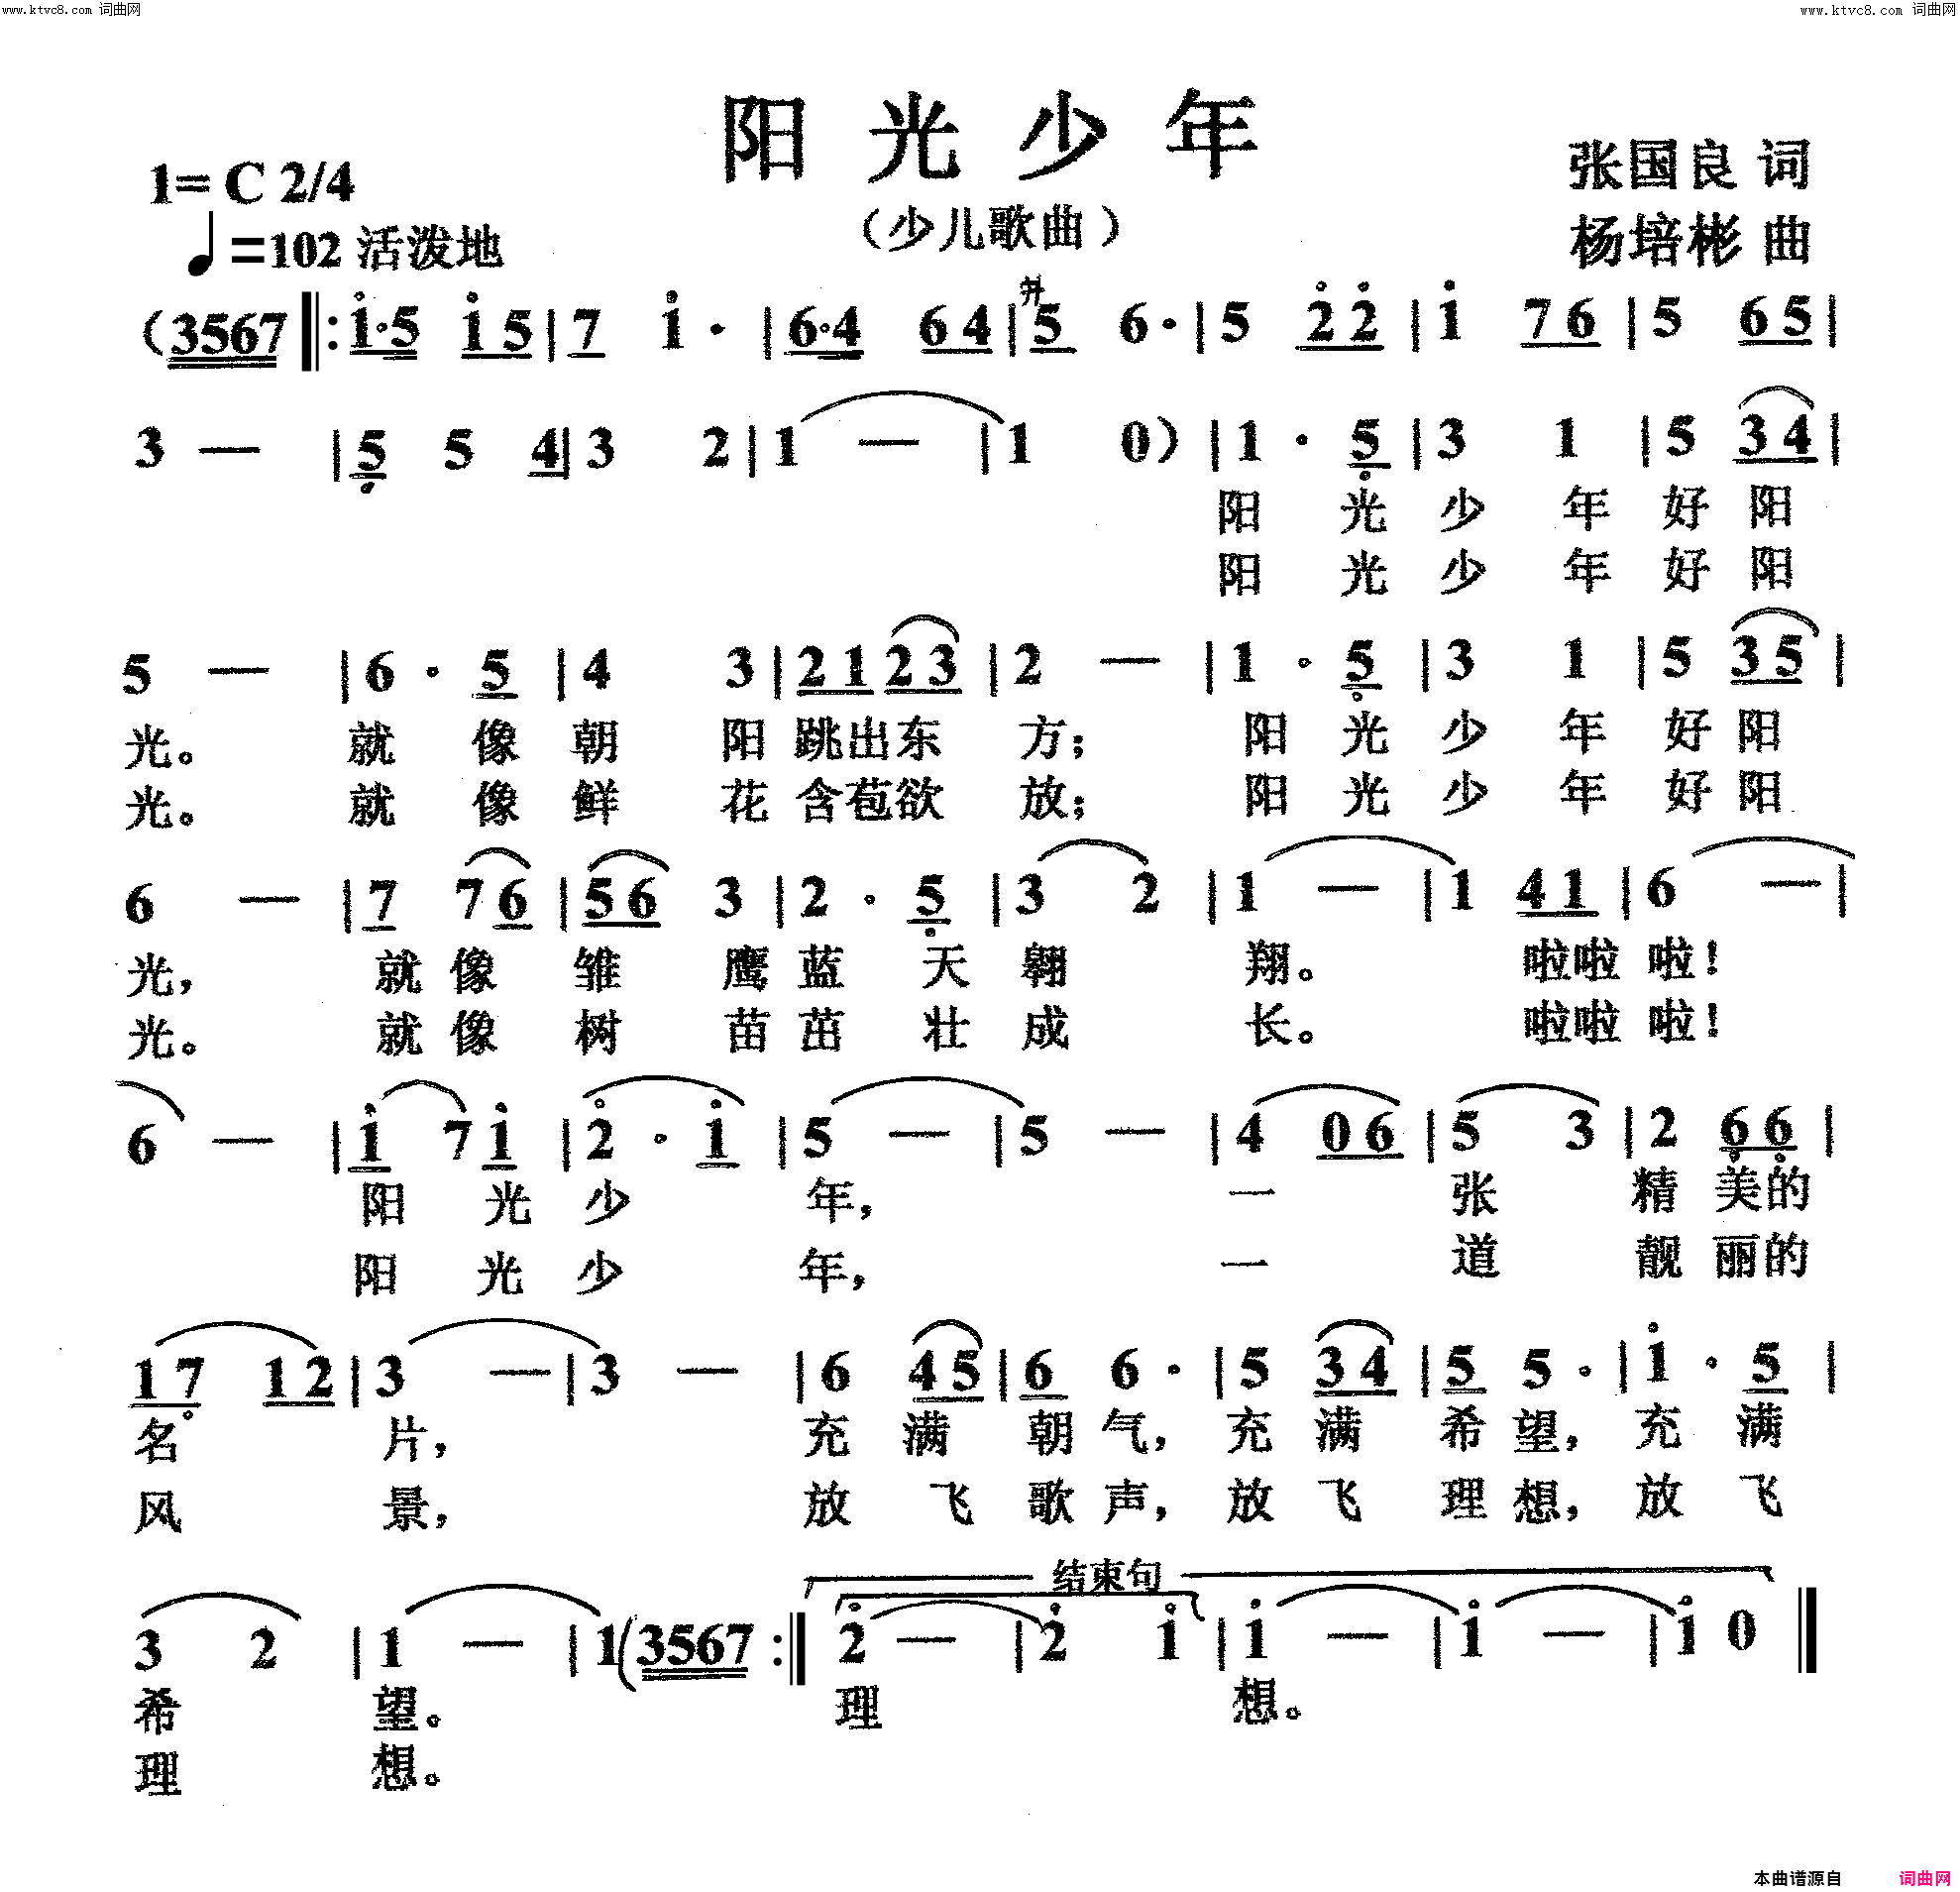 www.ktvc8.com 词曲网 www.ktvc8.com 词曲网
阳光少年
(少儿歌曲)
1=C 2/4
♩=102 活泼地
张国良 词
杨培彬 曲
(3567 ‖: i·5 i 5 | 7 i· | 6·4 6 4 | 5 6· | 5 2̇ 2̇ | i 7 6 | 5 6 5 |
3 — | 5̣ 5 4 | 3 2 | 1 — | 1 0) | 1· 5̣ | 3 1 | 5 3 4 |
阳 光 少 年 好 阳
阳 光 少 年 好 阳
5 — | 6· 5 | 4 3 | 2 1 2 3 | 2 — | 1· 5̣ | 3 1 | 5 3 5 |
光。 就 像 朝 阳 跳出东 方; 阳 光 少 年 好 阳
光。 就 像 鲜 花 含苞欲 放; 阳 光 少 年 好 阳
6 — | 7 7 6 | 5 6 3 | 2· 5̣ | 3 2 | 1 — | 1 4 1 | 6 — |
光, 就 像 雏 鹰 蓝 天 翱 翔。 啦啦 啦!
光。 就 像 树 苗 茁 壮 成 长。 啦啦 啦!
6 — | i 7 i | 2̇· i | 5 — | 5 — | 4 0 6 | 5 3 | 2 6̣ 6̣ |
阳 光 少 年, 一 张 精 美的
阳 光 少 年, 一 道 靓 丽的
1 7̣ 1 2 | 3 — | 3 — | 6 4 5 | 6 6· | 5 3 4 | 5 5· | i· 5 |
名 片, 充 满 朝 气, 充 满 希 望, 充 满
风 景, 放 飞 歌 声, 放 飞 理 想, 放 飞
结束句
3 2 | 1 — | 1 (3567 :‖ 2̇ — | 2̇ i | i — | i — | i 0 ‖
希 望。 理 想。
理 想。
本曲谱源自 词曲网